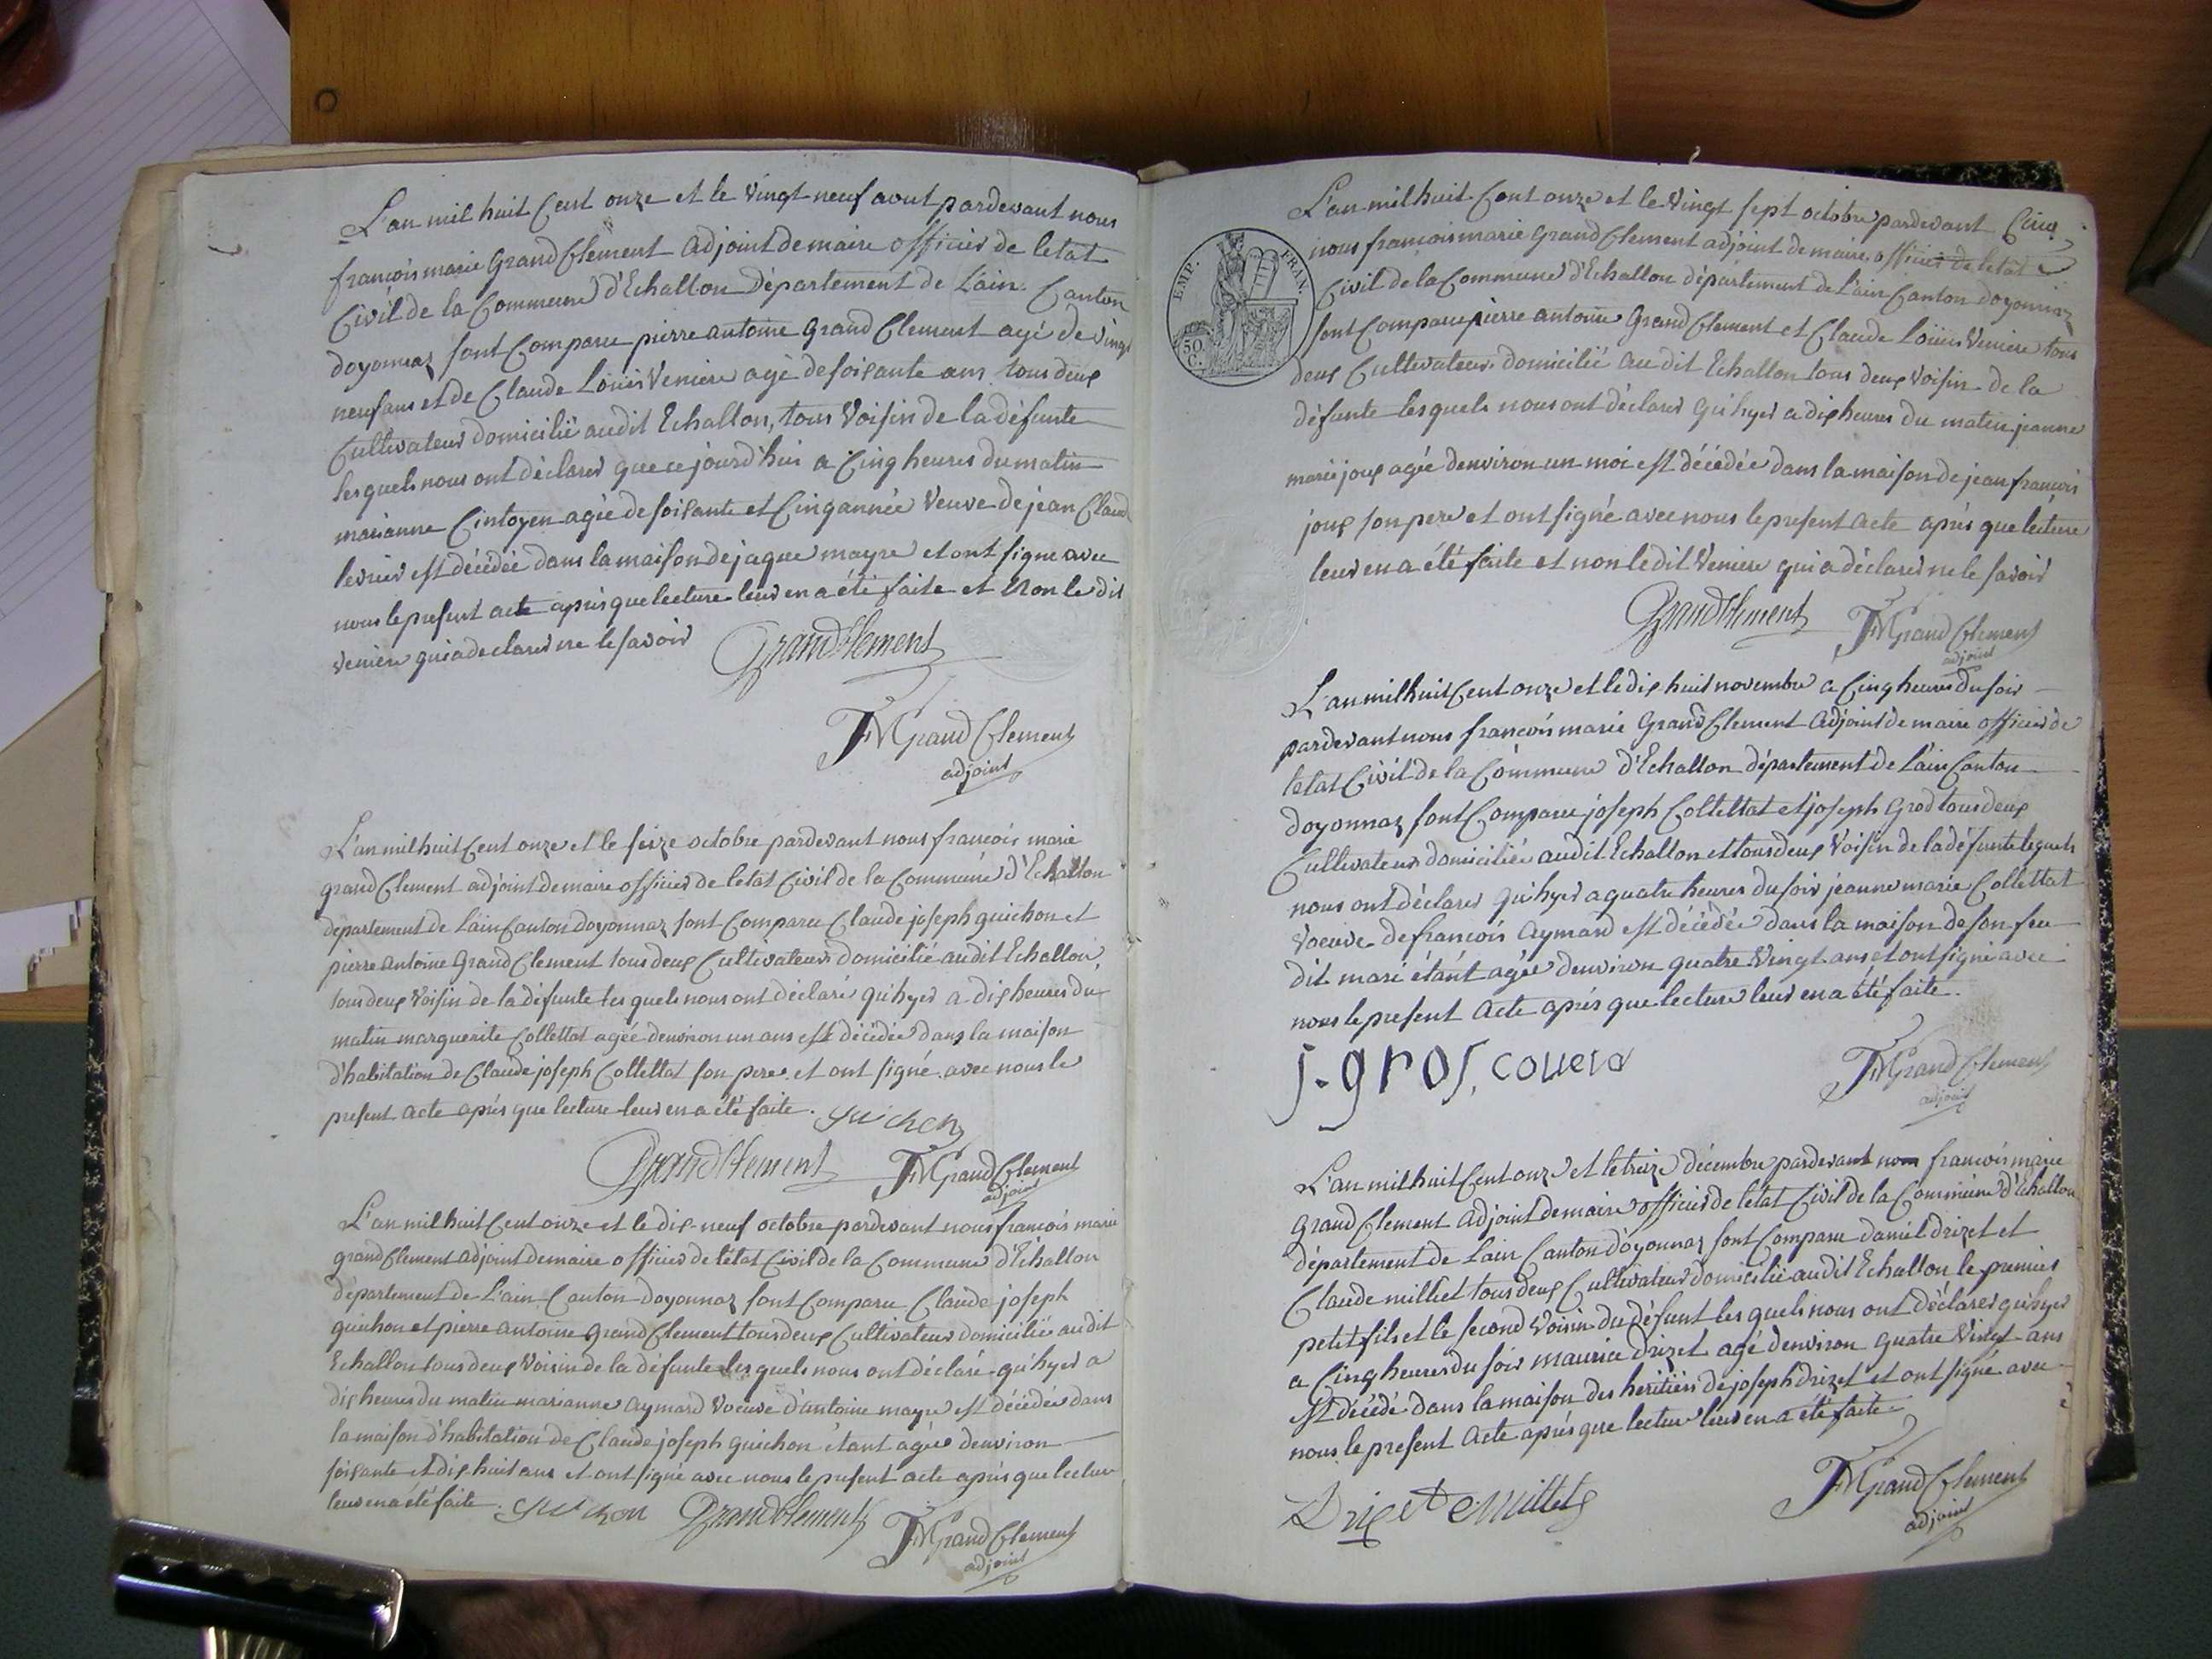 L'an mil huit Cent onze et le vingt neuf avout pardevant nous
françois marie Grand Clement adjoint de maire officier de letat
Civil de la Commune d'Echallon Département de Lain Canton
doyonnaz sont Comparu pierre antoine Grand Clement agé de vingt
neuf ans et de Claude Loüis Veniere agé de soixante ans tous deux
Cultivateur domicilié audit Echallon, tous Voisin de la défunte
lesquels nous ont déclarer que ce jourd'hui a Cinq heures du matin
marianne Cintoyen agée de soixante et Cinq année Veuve de jean Claud
levrier est décédée dans la maison de jaque mayre et ont signe avec
nous le present acte après que lecture leur en a été faite et Non le dit
veniere qui a declarer ne le savoir
GrandClement
FMGrand Clement
adjoint
L'an mil huit Cent onze et le seize octobre pardevant nous francois marie
grand Clement adjoint de maire officier de letat Civil de la Commune d'Echallon
département de Lain Canton doyonnaz sont Comparu Claude joseph guichon et
pierre antoine Grand Clement tous deux Cultivateur domicilié audit Echallon,
tous deux Voisin de la défunte les quels nous ont déclaré qu'hyer a dix heures du
matin marguerite Collettat agée denviron un ans est décédée dans la maison
d'habitation de Claude joseph Collettat son pere et ont signé avec nous le
present acte après que lecture leur en a été faite. guichon
GrandClement FMGrand Clement
adjoint
L'an mil huit Cent onze et le dix-neuf octobre pardevant nous francois marie
grand Clement adjoint de maire officier de létat Civil de la Commune d'Echallon
département de L'ain Canton doyonnaz sont Comparu Claude joseph
guichon et pierre antoine Grand Clement tous deux Cultivateur domiciliés audit
Echallon tous deux Voisin de la défunte les quels nous ont déclaré qu'hyer a
dix heures du matin marianne aymard Voeuve d'antoine mayre est décédée dans
la maison d'habitation de Claude joseph guichon étant agée denviron
soixante et dix huit ans et ont signé avec nous le present acte après que lecture
leur en a été faite. guichon GrandClement FMGrand Clement
adjoint
L'an mil huit Cent onze et le Vingt sept octobre pardevant Cinq
nous francois marie Grand Clement adjoint de maire officier de letat
Civil de la Commune d'Echallon département de L'ain Canton doyonnaz
sont Comparu pierre antoine Grand Clement et Claude Loüis Veniere tous
deux Cultivateur domicilié au dit Echallon tous deux Voisin de la
défunte lesquels nous ont déclarer qu'hyer a dix heures du matin jeanne
marie joux agée denviron un moi est décédée dans la maison de jean francois
joux son pere et ont signé avec nous le present acte après que lecture
leur en a été faite et non ledit Veniere qui a déclarer ne le savoir
GrandClement FMGrand Clement
adjoint
EMP. FRAN.
50 C.
L'an mil huit Cent onze et le dix huit novembre a Cinq heures du soir
pardevant nous francois marie Grand Clement adjoint de maire officier de
létat Civil de la Commune d'Echallon département de Lain Canton
doyonnaz sont Comparu joseph Collettat et joseph Grod tous deux
Cultivateur domiciliée audit Echallon et tous deux Voisin de la défunte lequels
nous ont déclarer qu'hyer a quatre heures du soir jeanne marie Collettat
Voeuve de francois aymard est décédée dans la maison de son feu
dit mari étant agée denviron quatre Vingt ans et ont signé avec
nous le present acte après que lecture leur en a été faite.
j-gros,
FMGrand Clement
adjoint
L'an mil huit Cent onze et le treize décembre pardevant nous francois marie
grand Clement adjoint de maire officier de létat Civil de la Commune d'Echallon
département de Lain Canton doyonnaz sont Comparu daniel drizet et
Claude milliet tous deux Cultivateur domicilié audit Echallon le premier
petit fils et le second Voisin du défunt les quels nous ont déclarer qu'hyer
a Cinq heures du soir maurice drizet agé denviron quatre Vingt ans
est décédé dans la maison des heritiers de joseph drizet et ont signé avec
nous le present acte après que lecture leur en a été faite.
FMGrand Clement
adjoint